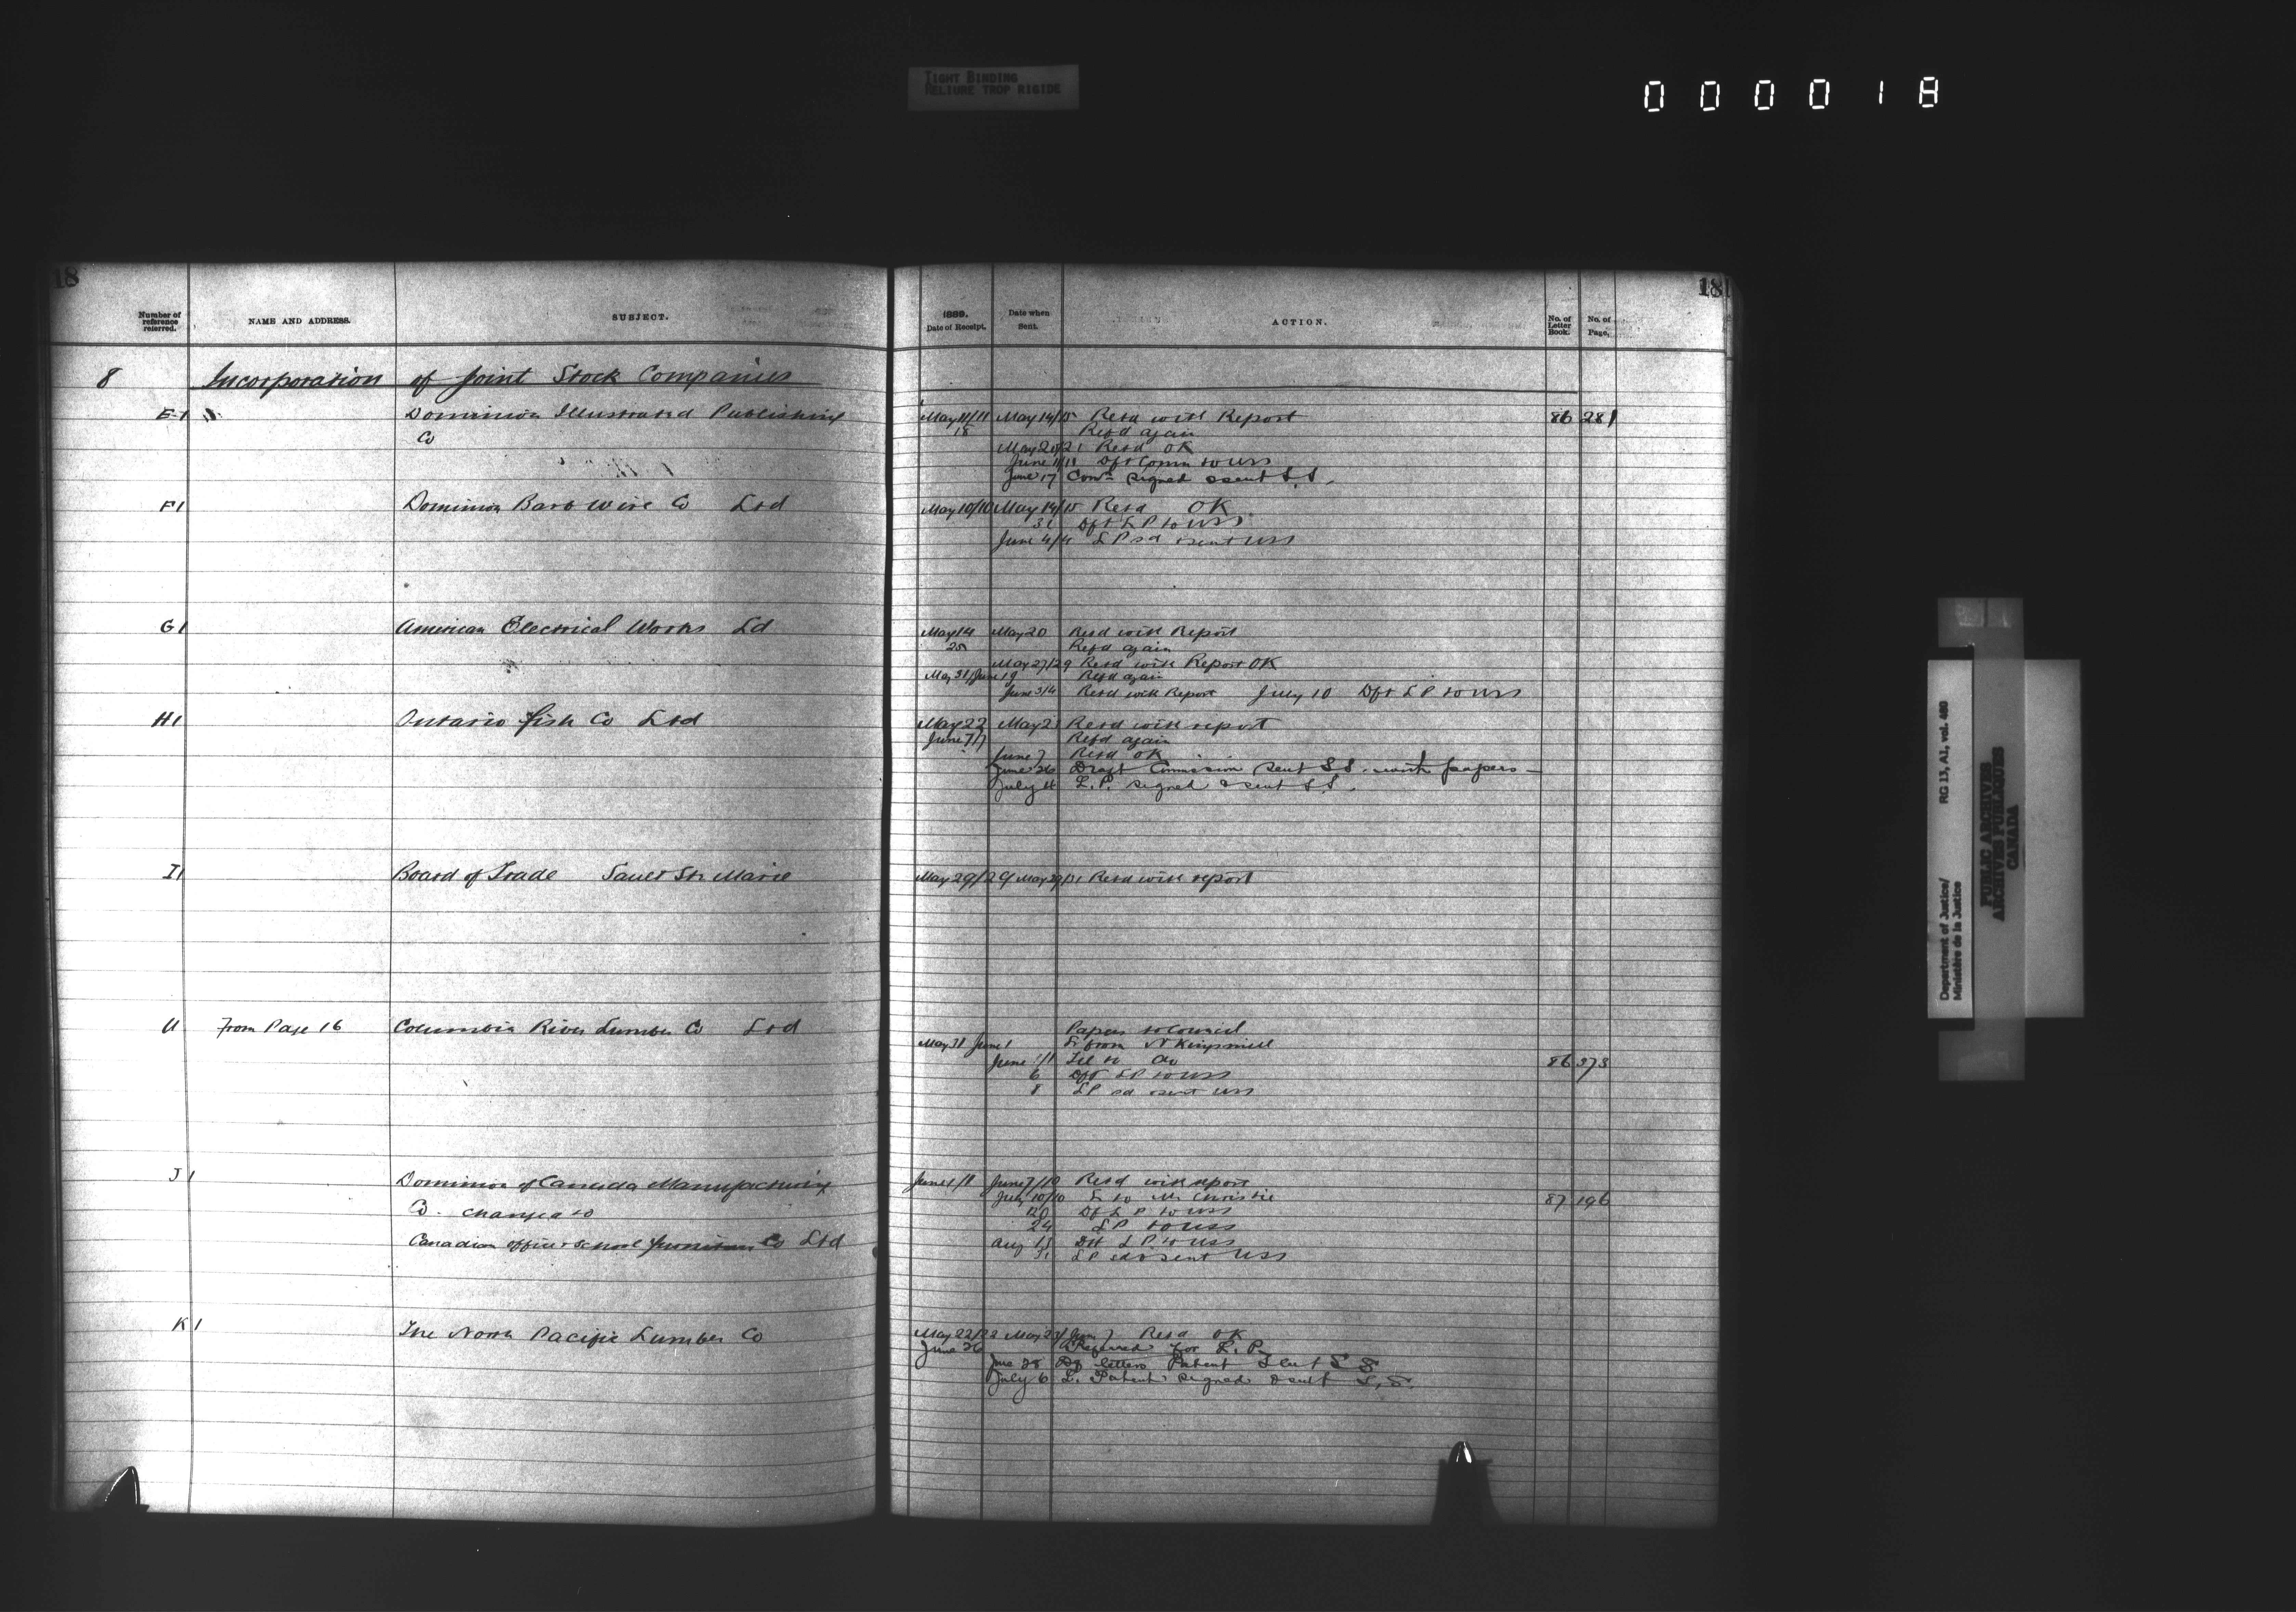 TIGHT BINDING
RELIURE TROP RIGIDE
0 0 0 0 1 8
18
18
Number of reference referred.
NAME AND ADDRESS.
SUBJECT.
1889.
Date of Receipt.
Date when Sent.
ACTION.
No. of Letter Book.
No. of Page.
8 Incorporation of Joint Stock Companies
E1 Dominion Illustrated Publishing May 11/11 May 14/15 Retd with Report 86 281
Co 18 Refd again
May 21/21 Retd OK
June 11/11 Dft Comn to USS
June 17 Comn signed & sent S.S.
F1 Dominion Barb Wire Co Ltd May 10/10 May 14/15 Retd OK
31 Dft L P to USS
June 4/4 L P sd & sent USS
G1 American Electrical Works Ld May 14 May 20 Retd with Report
25 Refd again
May 27/29 Retd with Report OK
May 31/June 1 Refd again
June 3/4 Retd with Report July 10 Dft L P to USS
H1 Ontario Fish Co Ltd May 22 May 23 Retd with report
June 7/7 Refd again
June 7 Retd OK
June 26 Draft Commission sent S S. with papers
July 4 L. P. signed & sent S.S.
I1 Board of Trade Sault Ste Marie May 29/29 May 29/31 Retd with report
U From Page 16 Columbia River Lumber Co Ltd Papers to Council
May 31 June 1 Lr from N Kingsmill
June 1/1 Tel to do 86 373
6 Dft L P to USS
8 L P sd & sent USS
J1 Dominion of Canada Manufacturing June 1/1 June 7/10 Retd with report
July 10/10 Lr to Mr Christie 87 196
Co. changed to 20 Dft L P to USS
24 L P to USS
Canadian office & school furniture Co Ltd Aug 13 Dft L P to USS
31 L P sd & sent USS
K1 The North Pacific Lumber Co May 22/22 May 23/June 7 Retd OK
June 26 Referred for L. P.
June 28 Df letters Patent Sent S S
July 6 L. Patent signed & sent S. S.
Department of Justice/
Ministère de la Justice
RG 13, A1, vol. 460
PUBLIC ARCHIVES
ARCHIVES PUBLIQUES
CANADA